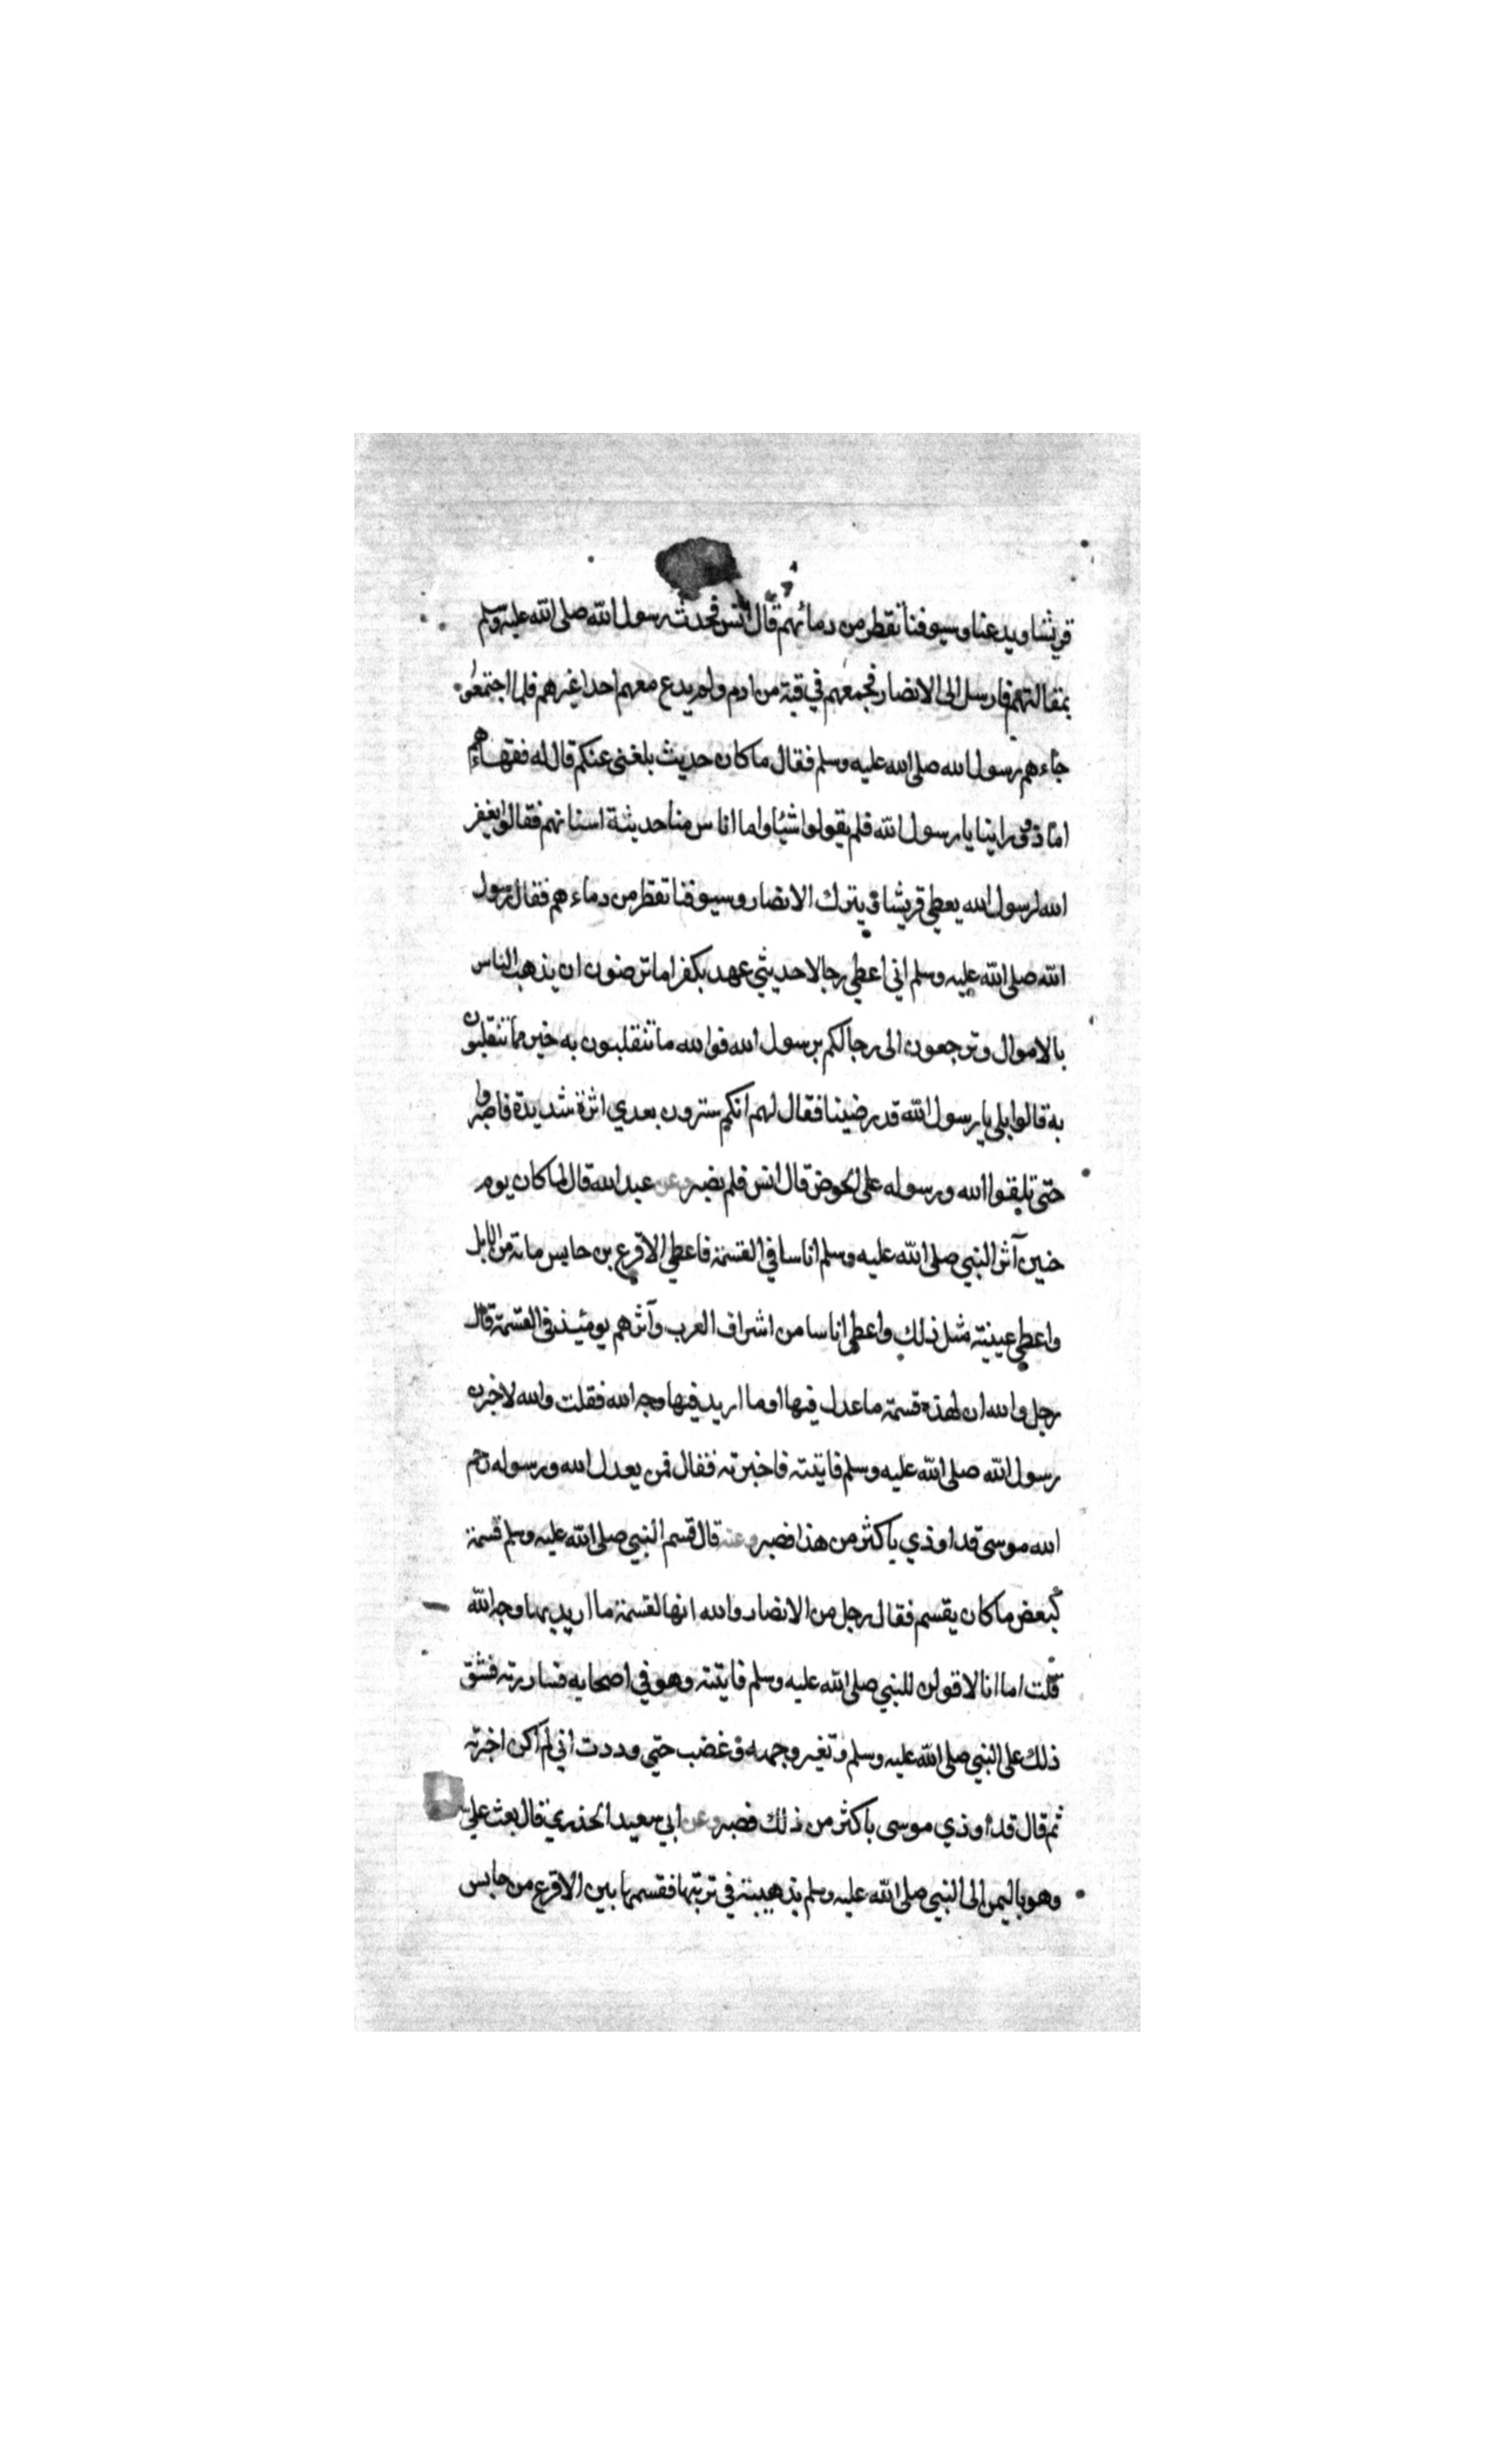 قريشا ويدعنا وسيوفنا تقطر من دمائهم قال انس فحدث رسول الله صلى الله عليه وسلم
بمقالتهم فارسل الى الانصار فجمعهم في قبة من ادم ولم يدع معهم احدا غيرهم فلما اجتمعوا
جاءهم رسول الله صلى الله عليه وسلم فقال ما كان حديث بلغني عنكم قال له فقهاءهم
اما ذو راينا يا رسول الله فلم يقولوا شيئا واما اناس منا حديثة اسنانهم فقالوا يغفر
الله لرسول الله يعطي قريشا ويترك الانصار وسيوفنا تقطر من دماءهم فقال رسول
الله صلى الله عليه وسلم اني اعطي رجالا حديثي عهد بكفر اما ترضون ان يذهب الناس
بالاموال وترجعون الى رحالكم برسول الله فوالله ما تنقلبون به خير مما تنقلبون
به قالوا بلى يا رسول الله قد رضينا فقال لهم انكم سترون بعدي اثرة شديدة فاصبروا
حتى تلقوا الله ورسوله على الحوض قال انس فلم نصبر وعن عبد الله قال لما كان يوم
حنين آثر النبي صلى الله عليه وسلم اناسا في القسمة فاعطى الاقرع بن حابس ماية من الابل
واعطى عيينة مثل ذلك واعطى اناسا من اشراف العرب وآثرهم يومئذ في القسمة قال
رجل والله ان هذه قسمة ما عدل فيها او ما اريد فيها وجه الله فقلت والله لاخبرن
رسول الله صلى الله عليه وسلم فاتيته فاخبرته فقال فمن يعدل الله ورسوله رحم
الله موسى قد اوذي باكثر من هذا فصبر وعنه قال قسم النبي صلى الله عليه وسلم قسمة
كبعض ما كان يقسم فقال رجل من الانصار والله انها لقسمة ما اريد بها وجه الله
قلت اما انا لاقولن للنبي صلى الله عليه وسلم فاتيته وهو في اصحابه فساررته فشق
ذلك على النبي صلى الله عليه وسلم وتغير وجهه وغضب حتى وددت اني لم اكن اخبرته
ثم قال قد اوذي موسى باكثر من ذلك فصبر وعن ابي سعيد الخدري قال بعث علي
وهو باليمن الى النبي صلى الله عليه وسلم بذهيبة في تربتها فقسمها بين الاقرع من حابس